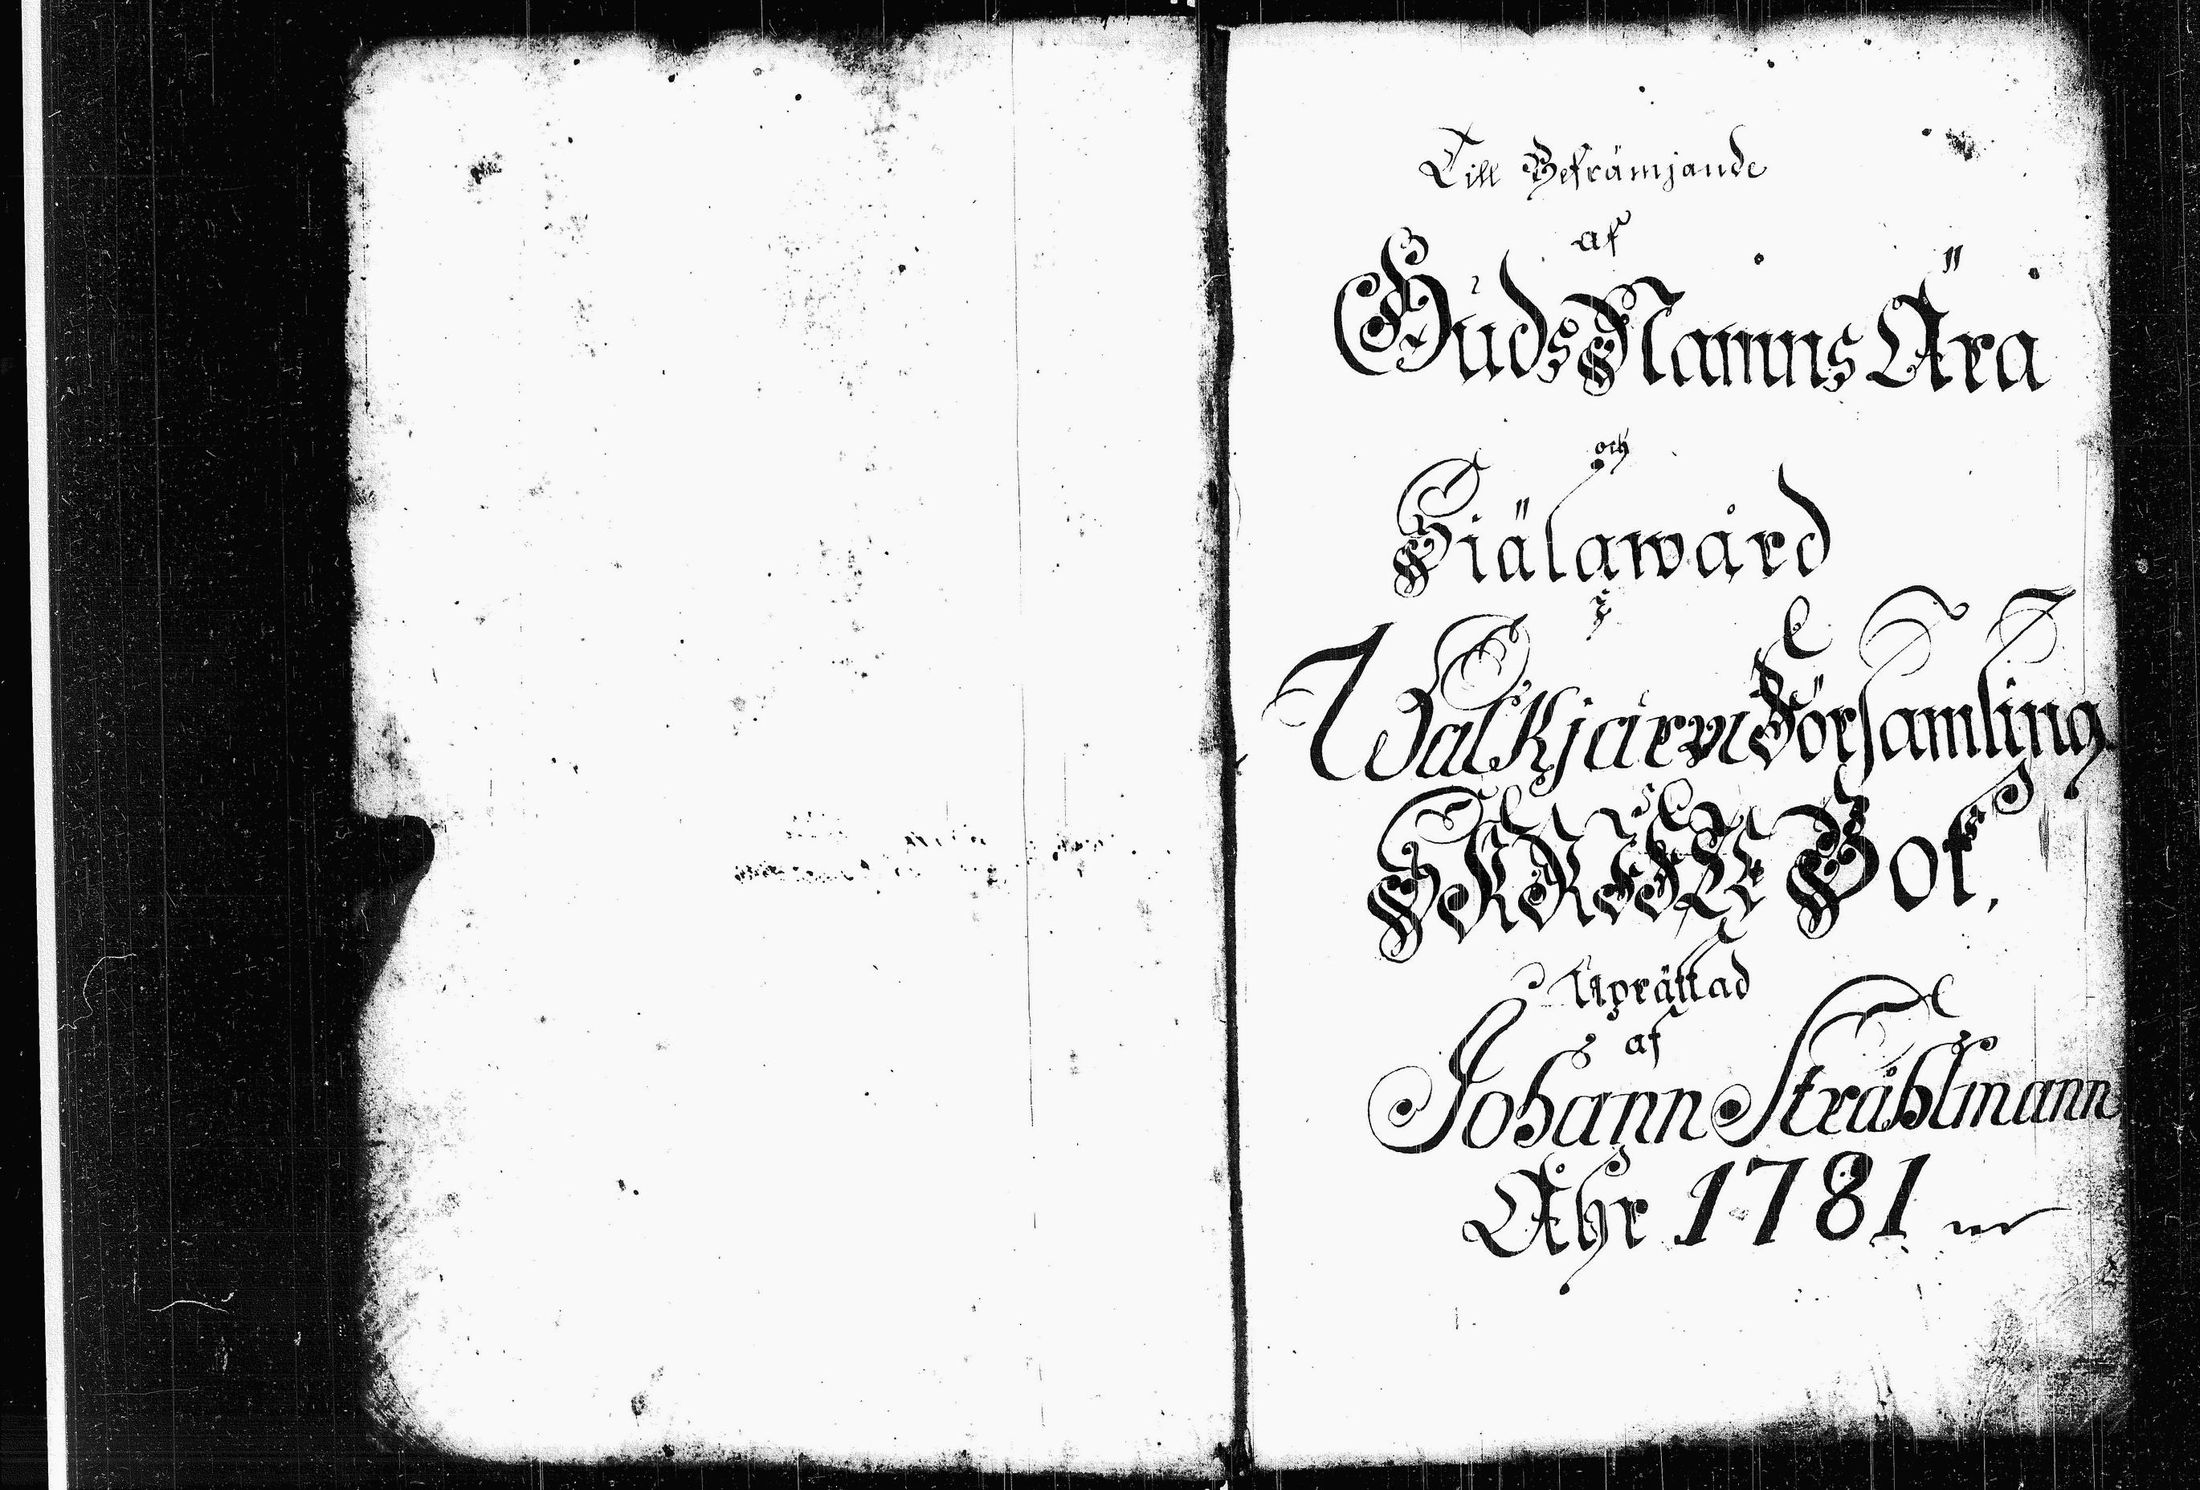 Till Befrämjande
af
Guds Namns Ära
och
Siälawård
i
Walkjärvi Församling
SKRIFTE Bok,
Uprättad
af
Johann Stråhlmann
Åhr 1781